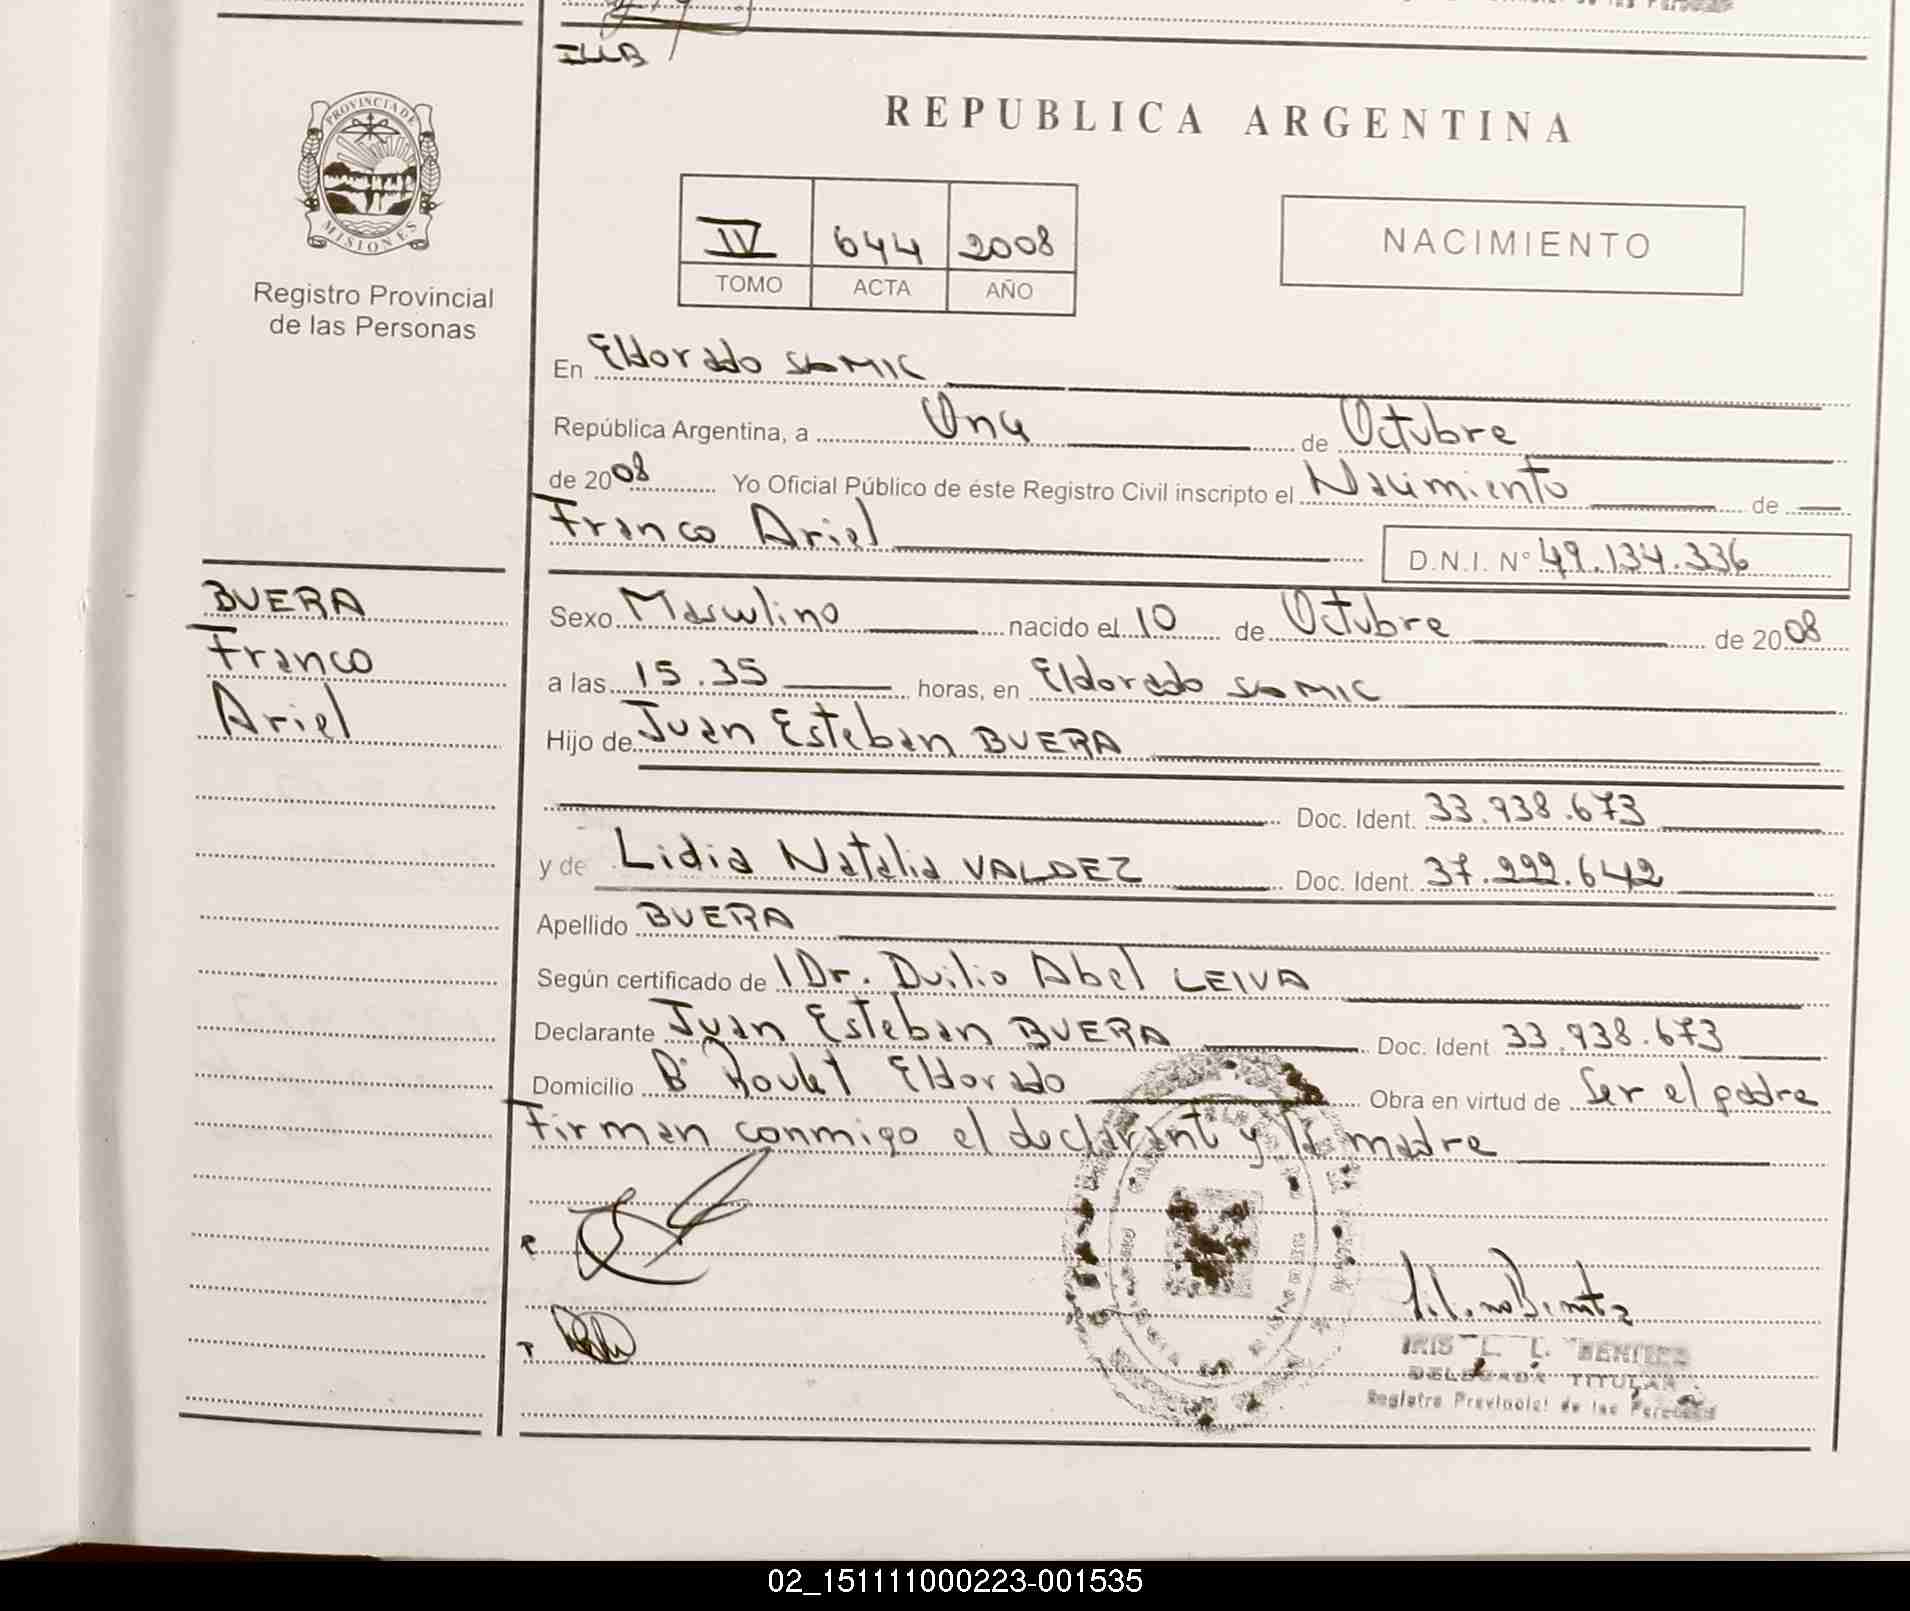 ILLB
PROVINCIA DE
MISIONES
Registro Provincial
de las Personas
REPUBLICA ARGENTINA
IV 644 2008
TOMO ACTA AÑO
NACIMIENTO
En Eldorado SAMIC
República Argentina, a Once de Octubre
de 2008 Yo Oficial Público de éste Registro Civil inscripto el Nacimiento de
Franco Ariel
D.N.I. N° 49.134.336
BUERA
Franco
Ariel
Sexo Masculino nacido el 10 de Octubre de 2008
a las 15.35 horas, en Eldorado SAMIC
Hijo de Juan Esteban BUERA
Doc. Ident. 33.938.673
y de Lidia Natalia VALDEZ Doc. Ident. 37.222.642
Apellido BUERA
Según certificado de l Dr. Duilio Abel LEIVA
Declarante Juan Esteban BUERA Doc. Ident 33.938.673
Domicilio B° Roulet Eldorado Obra en virtud de Ser el padre
Firman conmigo el declarant y la madre
IRIS L. L. BENITEZ
DELEGADA TITULAR
Registro Provincial de las Personas
02_151111000223-001535